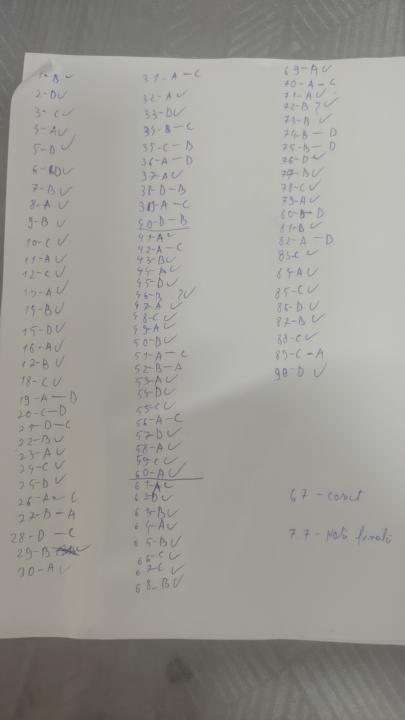 1-B✓
2-D✓
3-C✓
4-A✓
5-D✓
6-D✓
7-B✓
8-A✓
9-B✓
10-C✓
11-A✓
12-C✓
13-A✓
14-B✓
15-D✓
16-A✓
17-B✓
18-C✓
19-A-D
20-C-D
21-D-C
22-B✓
23-A✓
24-C✓
25-D✓
26-A-C
27-B-A
28-D-C
29-B ✓
30-A✓
31-A-C
32-A✓
33-D✓
34-B-C
35-C-B
36-A-D
37-A✓
38-D-B
39-A-C
40-D-B
41-A✓
42-A-C
43-B✓
44-A✓
45-D✓
46-B ?✓
47-A✓
48-C✓
49-A✓
50-D✓
51-A-C
52-B-A
53-A✓
54-D✓
55-C✓
56-A-C
57-D✓
58-A✓
59-C✓
60-A✓
61-A✓
62-D✓
63-B✓
64-A✓
65-B✓
66-C✓
67-C✓
68-B✓
69-A✓
70-A-C
71-A✓
72-B?✓
73-B✓
74-B-D
75-B-D
76-D✓
77-B✓
78-C✓
79-A✓
80-B-D
81-B✓
82-A-D
83-C✓
84-A✓
85-C✓
86-D✓
87-B✓
88-C✓
89-C-A
90-D✓
67-corect
7.7-Notă finală